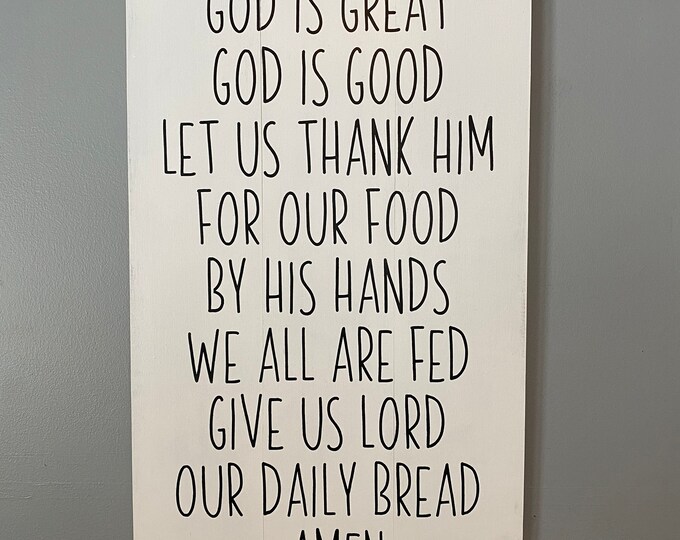 GOD IS GREAT
GOD IS GOOD
LET US THANK HIM
FOR OUR FOOD
BY HIS HANDS
WE ALL ARE FED
GIVE US LORD
OUR DAILY BREAD
AMEN